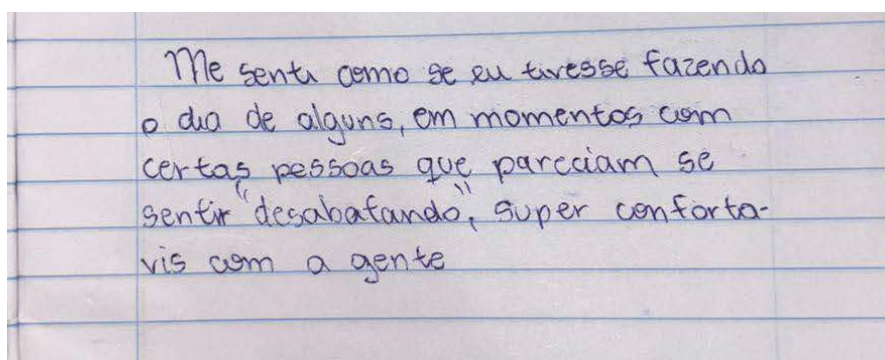 Me senti como se eu tivesse fazendo
o dia de alguns, em momentos com
certas pessoas que pareciam se
sentir "desabafando", super conforta-
vis com a gente